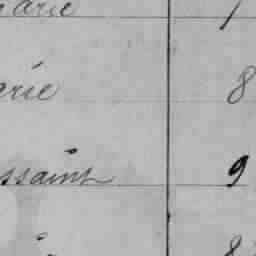 arie 1
erie 8
ssaint 9
8